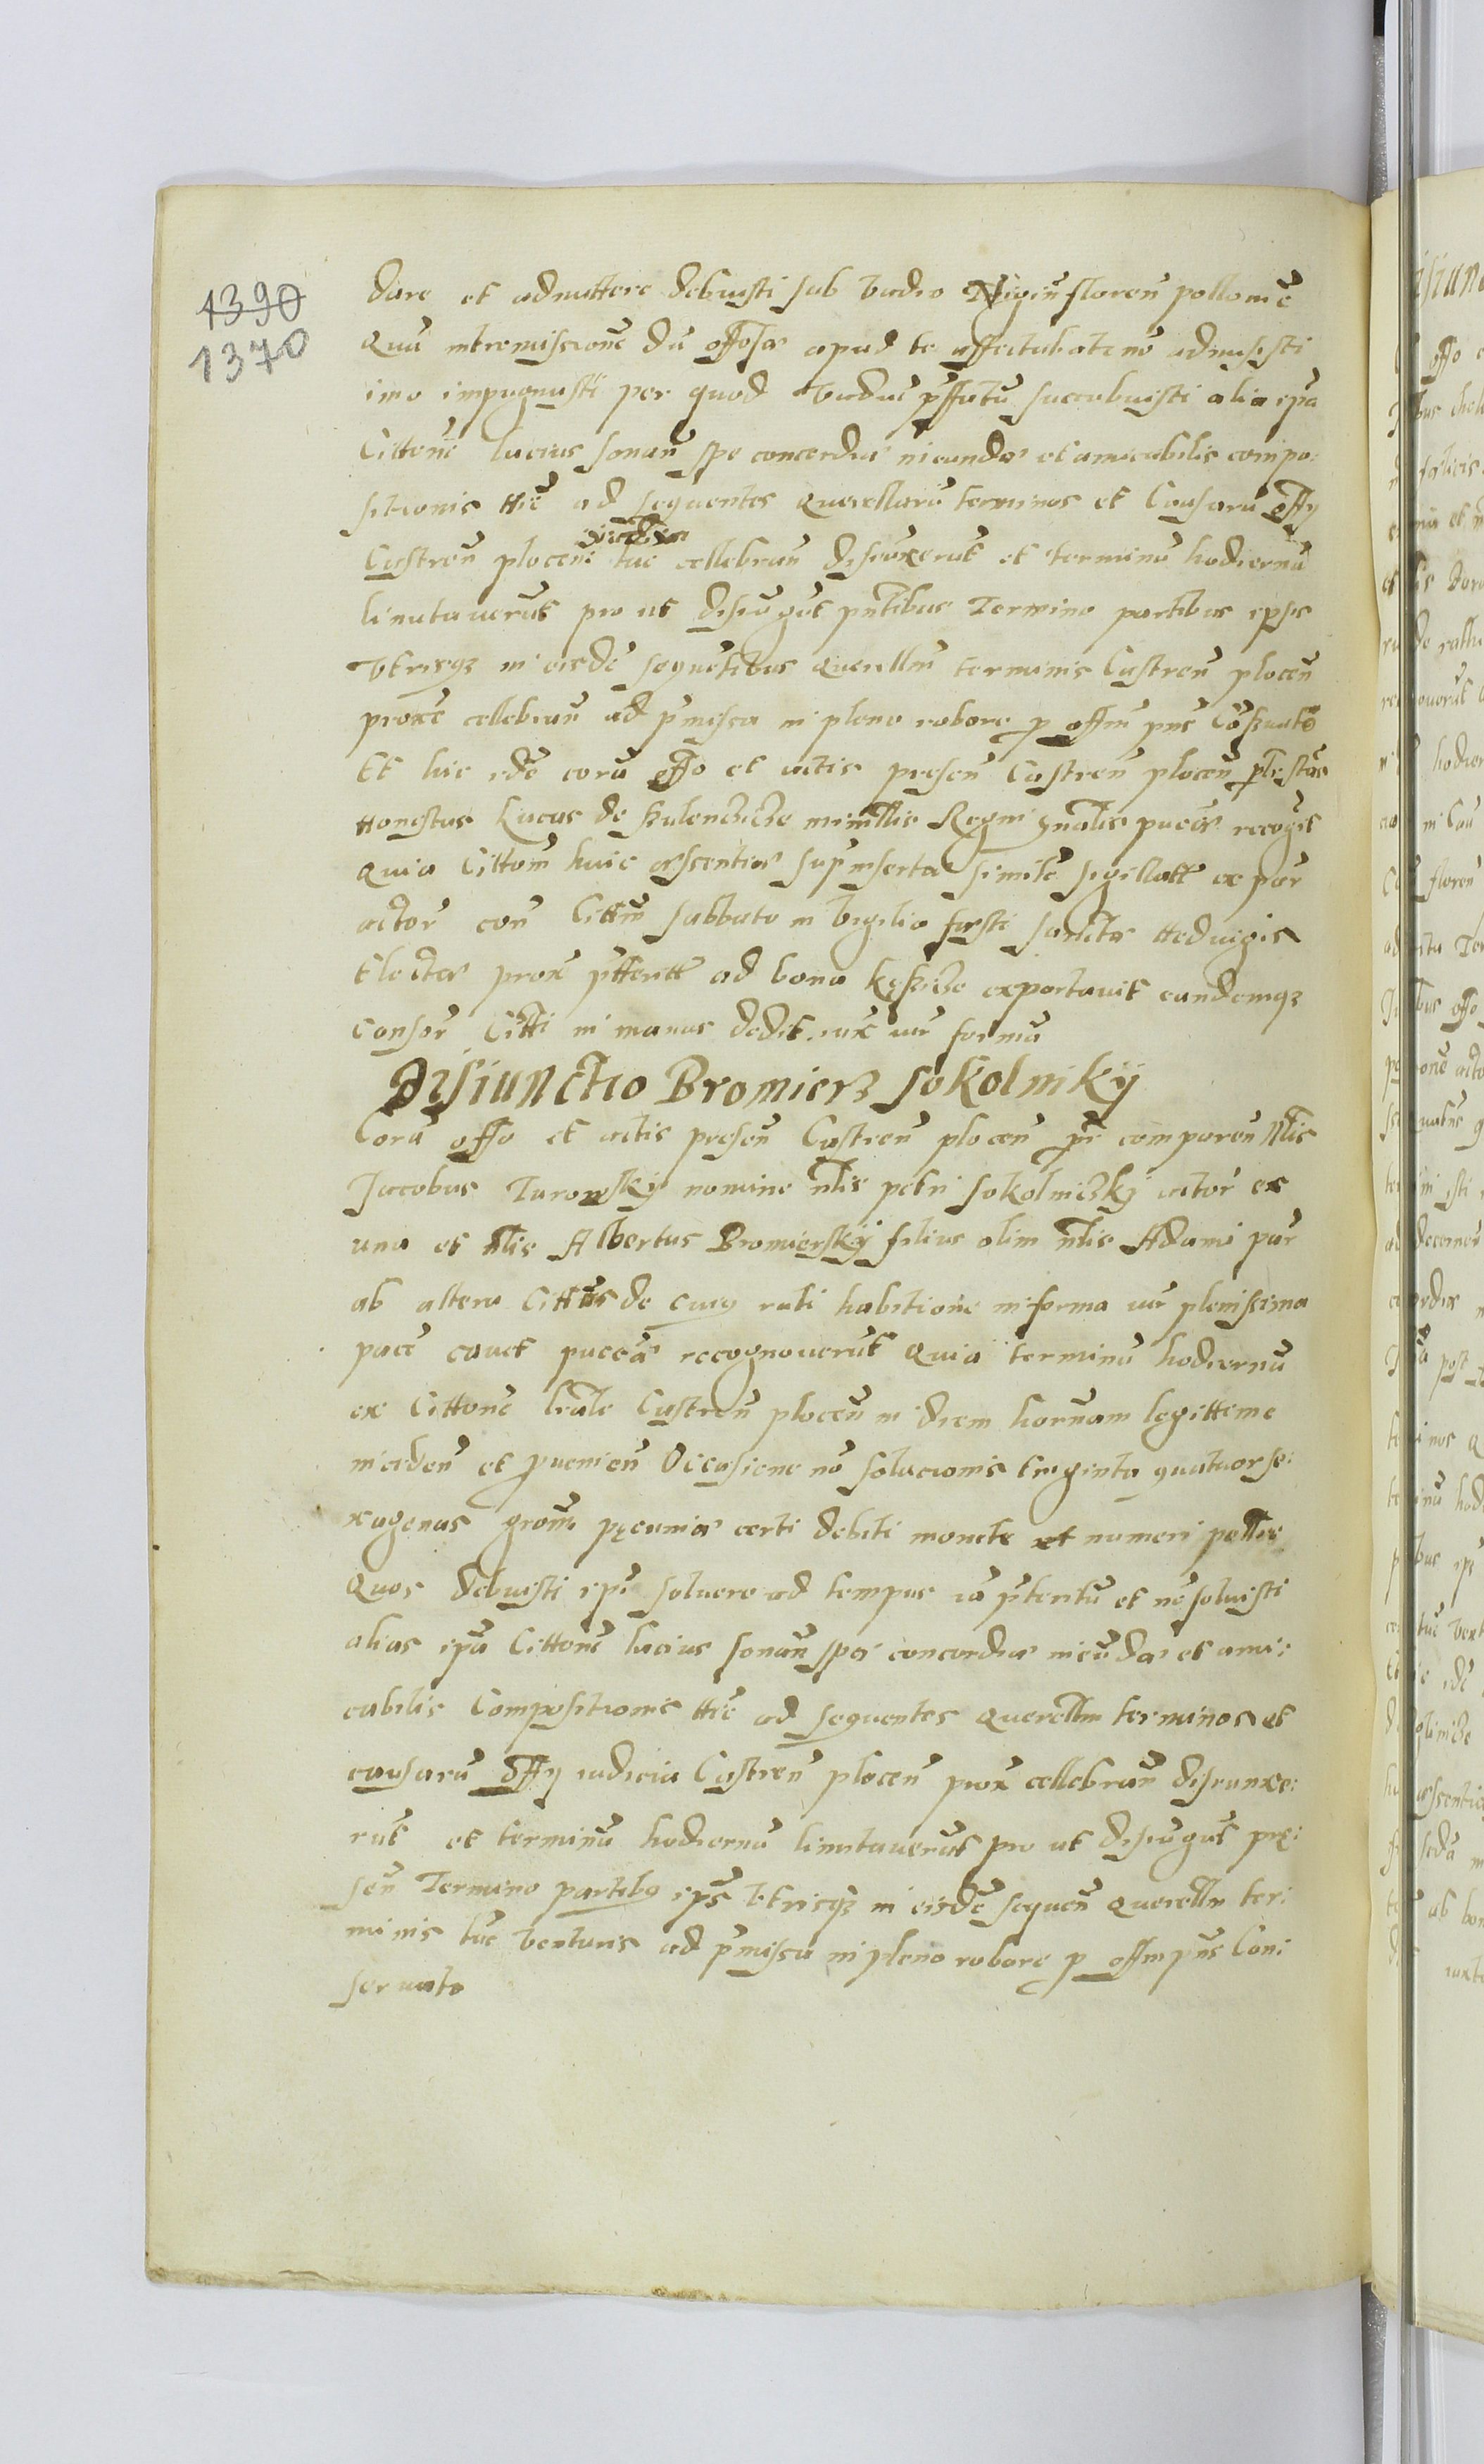 1390
1370
dare et admittere debuisti sub vadio Nigin floren pollone
Qua intromissione du offose apud te affectabat no admisisti
imo impugnasti per quod vadiu pffatu succubuisti alia ipa
Cittone lacius sonan spe concordiæ ineundæ et amicabilis compo:
sitionis hic ad sequentes Querellaru terminos et Causaru offy
iudicia
Castren plocen tuc cellebran disiuxerut et terminu hodiernu
limitaverut pro ut disiugut pntibus Termino partibus ipsis
Vtrisqz in eisde sequetibus querellm terminis Castren plocen
proxe cellebran ad pmissa in pleno robore p offm pns Coseruato
Et hic ide cora offo et actis presen Castren plocen
Honestus Lucas de Kulenczicze minllis Regni gnalis puca recogt
Quia Cittom huic assentia sup inserta simile sigillatt ex par
actor con Cittm sabbato in vigilia festi sanctæ Hedvigis
Electæ prox ptterit ad bona Kęssicze exportavit eandemqz
consor Citti in manus dedit iux iur forma
Disiunctio Bromiersz sokolnikÿ
Cora offo et actis presen Castren plocen pr comparen Nlis
Jacobus Turowskÿ nomine nlis petri sokolniczkÿ actor ex
una et nlis Albertus Bromierskÿ filius olim nlis Adami par
ab altera Cittus de cuiq rati habitione in forma iur plenissima
pace cavet pucca recognoverut Quia terminu hodiernu
ex Cittone lrale Castren plocen in diem hornam legitteme
inciden et pvenien Occasione no solucionis triginta quatuor se:
xagenas grom pęcuniæ certi debiti monete et numeri pollis
Quos debuisti ipi solvere ad tempus ia pteritu et no solvisti
alias ipa Cittone lacius sonan spei concordiæ ineundæ et ami:
cabilis Compositionis hic ad sequentes Querellm terminos et
causaru offy iudicia Castren plocen prox cellebran disiunxe:
rut et terminu hodiernu limitaverut pro ut disiugut prę:
sen Termino partibq ips Vtrisqz in eisde sequen Querellm ter:
minis tuc venturis ad pmissa in pleno robore p offm pns Con:
servato